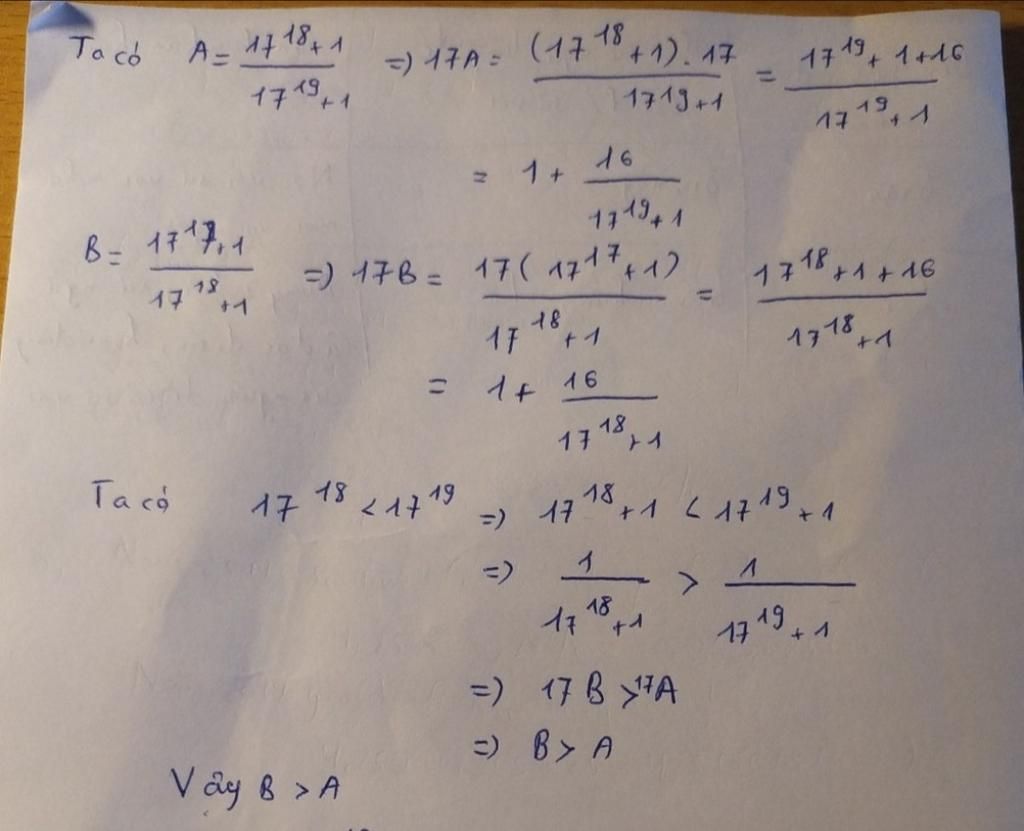 Ta có A = \frac{17^{18}+1}{17^{19}+1} => 17A = \frac{(17^{18}+1).17}{17^{19}+1} = \frac{17^{19}+1+16}{17^{19}+1}
= 1 + \frac{16}{17^{19}+1}
B = \frac{17^{17}+1}{17^{18}+1} => 17B = \frac{17(17^{17}+1)}{17^{18}+1} = \frac{17^{18}+1+16}{17^{18}+1}
= 1 + \frac{16}{17^{18}+1}
Ta có 17^{18} < 17^{19} => 17^{18}+1 < 17^{19}+1
=> \frac{1}{17^{18}+1} > \frac{1}{17^{19}+1}
=> 17B > 17A
=> B > A
Vậy B > A